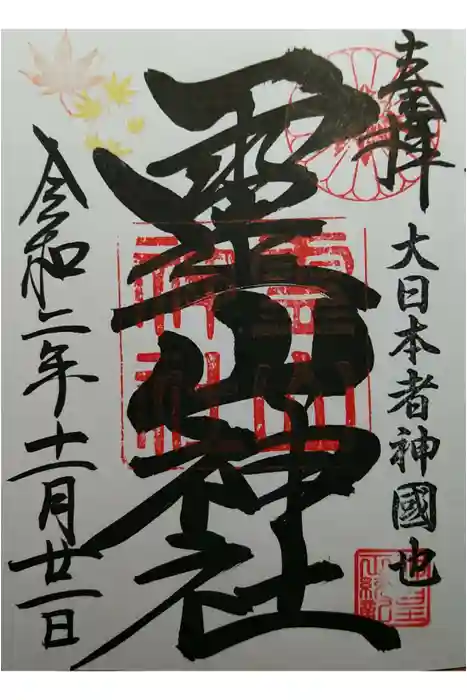 奉拝
大日本者神國也
霊山神社
令和二年十一月廿一日